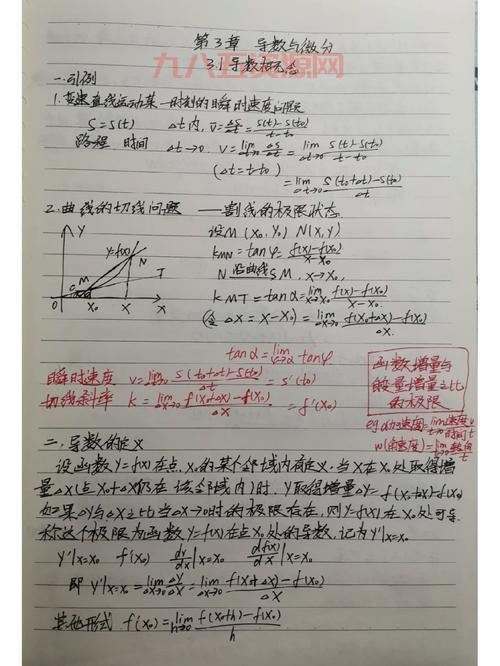 第3章 导数与微分
九八五资源网
3.1 导数概念
一.引例
1.变速直线运动某一时刻的瞬时速度问题
S=S(t) Δt内, v̄=ΔS/Δt=S(t)-S(t₀)/t-t₀
路程 时间 Δt→0. v=lim Δt→0 ΔS/Δt=lim Δt→0 S(t)-S(t₀)/t-t₀
(Δt=t-t₀)
=lim Δt→0 S(t₀+Δt)-S(t₀)/Δt
2.曲线的切线问题 ——割线的极限状态.
设M(X₀,Y₀) N(X,Y)
kMN=tanφ=f(X)-f(X₀)/X-X₀
N沿曲线→M, X→X₀,
kMT=tanα=lim X→X₀ f(X)-f(X₀)/X-X₀
(令ΔX=X-X₀)=lim ΔX→0 f(X₀+ΔX)-f(X₀)/ΔX
Y
Y=f(X)
N
T
M
C
O X₀ X X
tanα=lim φ→α tanφ
瞬时速度 v=lim Δt→0 S(t₀+Δt)-S(t₀)/Δt=S'(t₀)
切线斜率 k=lim ΔX→0 f(X₀+ΔX)-f(X₀)/ΔX=f'(X₀)
函数增量与
自变量增量之比
的极限
eg a加速度=lim t→0 速度v/时间t
w(角速度)=lim t→0
二.导数的定义
设函数Y=f(X)在点X₀的某个邻域内有定义,当X在X₀处取得增
量ΔX(点X₀+ΔX仍在该邻域内)时,Y取得增量ΔY=f(X₀+ΔX)-f(X₀)
如果ΔY与ΔX之比当ΔX→0时的极限存在,则Y=f(X)在X₀处可导.
称这个极限为函数Y=f(X)在点X₀处的导数,记为Y'|X=X₀
Y'|X=X₀ f'(X₀) dy/dx|X=X₀ df(x)/dx|X=X₀
即 Y'|X=X₀=lim ΔX→0 ΔY/ΔX=lim ΔX→0 f(X₀+ΔX)-f(X₀)/ΔX
其他形式 f'(X₀)=lim h→0 f(X₀+h)-f(X₀)/h